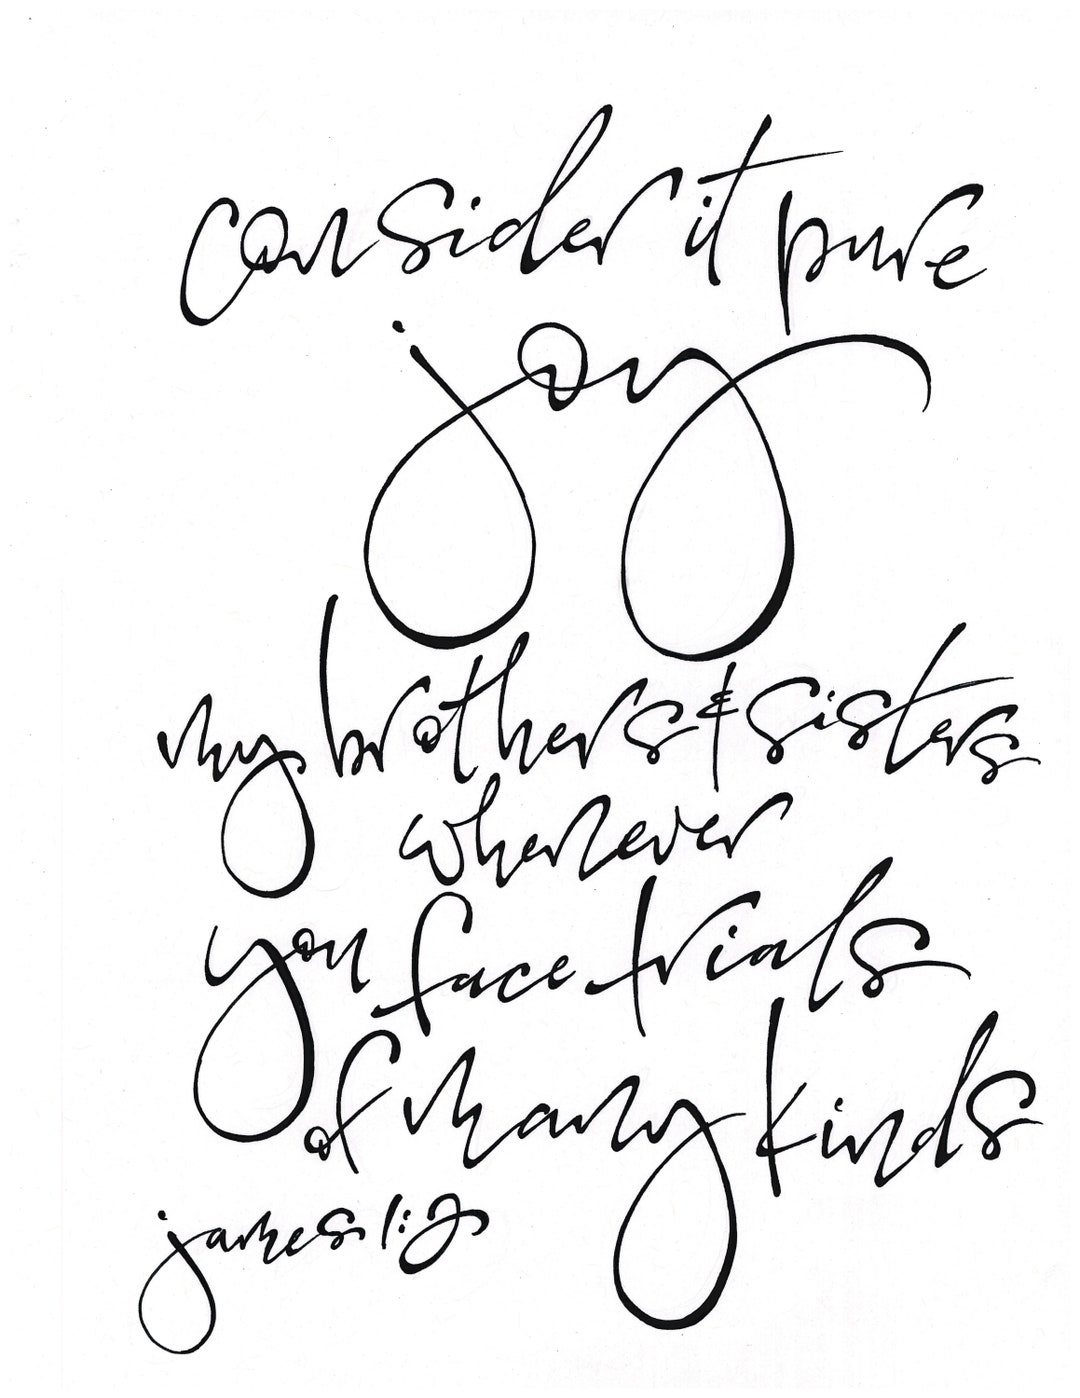 consider it pure
joy
my brothers & sisters
whenever
you face trials
of many kinds
james 1:2